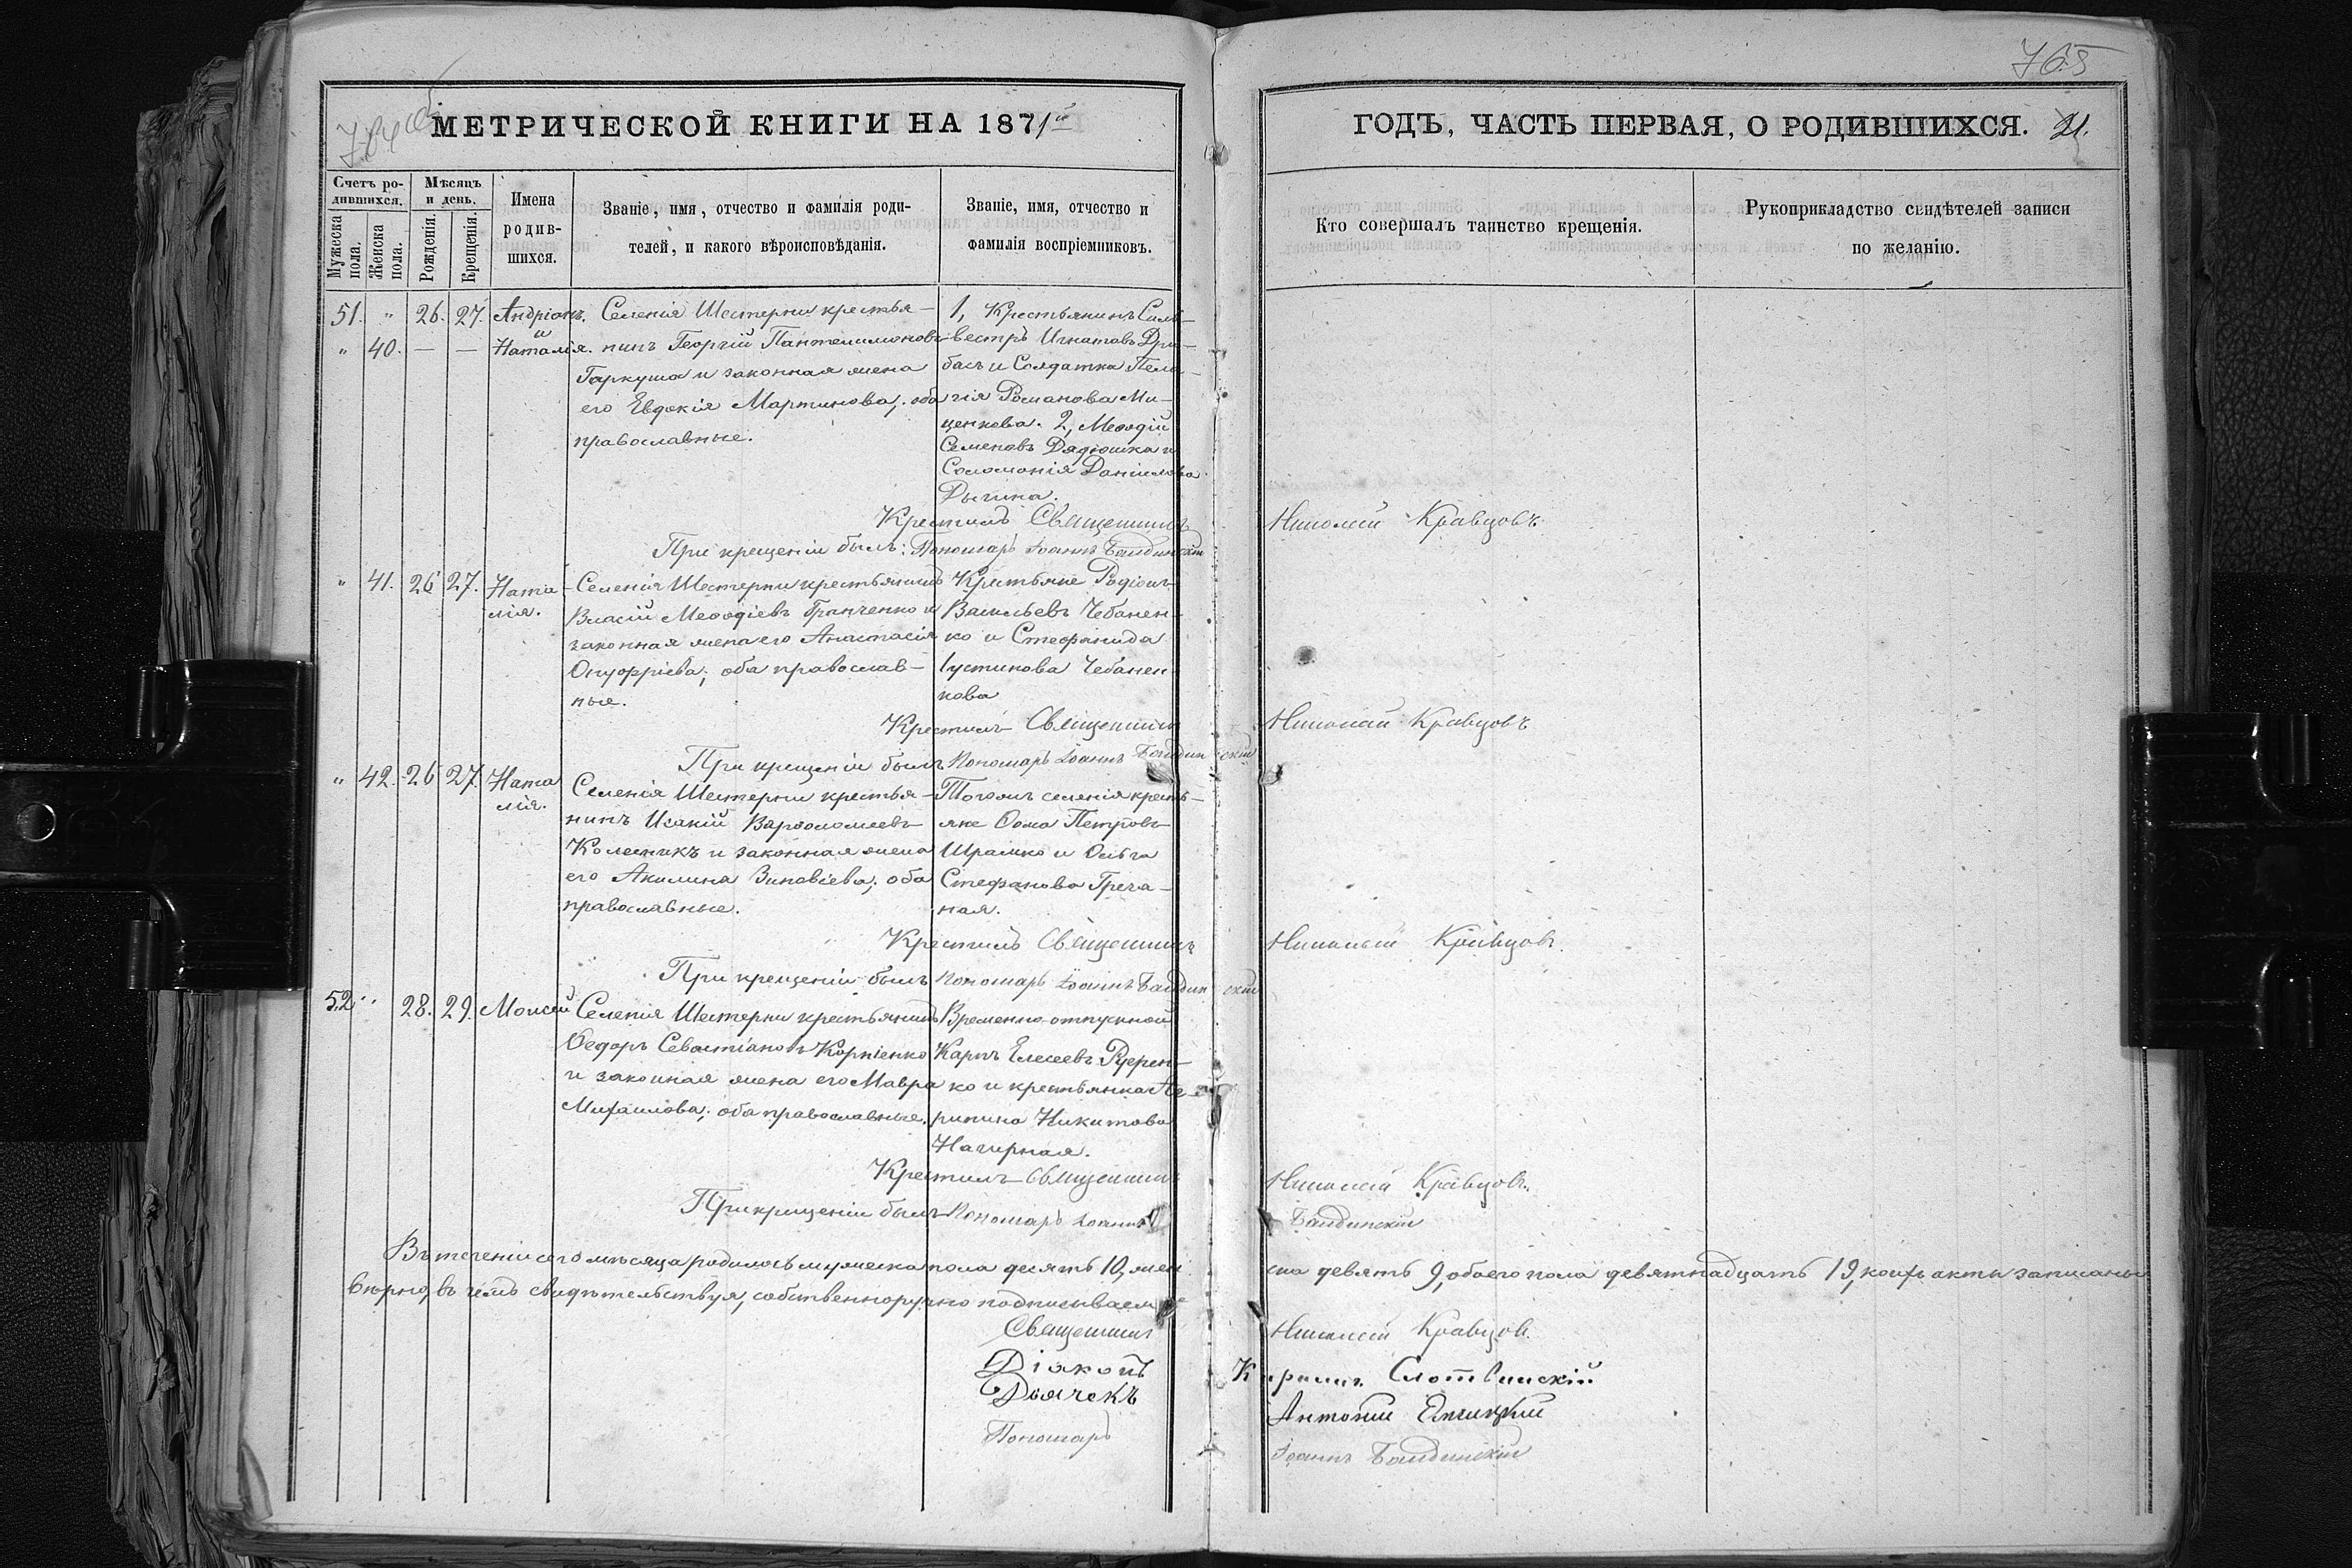 765
МЕТРИЧЕСКОЙ КНИГИ НА 1871й
ГОДЪ, ЧАСТЬ ПЕРВАЯ, О РОДИВШИХСЯ.
Счетъ ро-
дившихся.
Мужеска
пола.
Женска
пола.
Мѣсяцъ
и день.
Рожденія.
Крещенія.
Имена
родив-
шихся.
Званіе, имя, отчество и фамилія роди-
телей, и какого вѣроисповѣданія.
Званіе, имя, отчество и
фамилія воспріемниковъ.
Кто совершалъ таинство крещенія.
Рукоприкладство свидѣтелей записи
по желанію.
51. " 26. 27. Андріанъ
и
" 40. — — Наталія.
Селенія Шестерни крестья-
нинъ Георгій Пантелимоновъ
Гаркуша и законная жена
его Евдокія Мартинова; оба
православные.
1, Крестьянинъ Силь-
вестръ Игнатовъ
и Солдатка Пела-
гія Романова Ми-
ценкова. 2, Меѳодій
Семеновъ Дядюшка и
Соломонія Даніилова
Крестилъ Священникъ Николай Кравцовъ
При крещеніи былъ: Пономарь Іоаннъ
" 41. 26 27. Ната-
лія.
Селенія Шестерни крестьянинъ
Власій Меѳодіевъ Гранченко и
законная жена его Анастасія
Онуфріева; оба православ-
ные.
Крестьяне Родіонъ
Васильевъ Чебанен-
ко и Стефанида
Іустинова Чебанен-
кова
Крестилъ Священникъ Николай Кравцовъ
При крещеніи былъ Пономарь Іоаннъ
" 42. 26 27. Ната
лія.
Селенія Шестерни крестья-
нинъ Исакій Варѳоломеевъ
Колесникъ и законная жена
его Акилина Зиновіева; оба
православные.
Тогожъ селенія кресть-
яне Ѳома Петровъ
Шрамко и Ольга
Стефанова Греча-
ная.
Крестилъ Священникъ Николай Кравцовъ.
При крещеніи былъ Пономарь Іоаннъ
52 " 28. 29. Моисей
Селенія Шестерни крестьянинъ
Ѳедоръ Севастіановъ Корніенко
и законная жена его Мавра
Михаилова; оба православные.
Временно-отпускной
Карпъ Елесеевъ
и крестьянка
Никитова
Нагирная.
Крестилъ Священникъ Николай Кравцовъ.
При крещеніи былъ Пономарь Іоаннъ
Въ теченіи сего мѣсяца родилось мужеска пола десять 10, жен
ска девять 9, обоего пола девятнадцать 19, коихъ акты записаны
вѣрно, въ чемъ свидѣтельствуя, собственноручно подписываем
Священникъ Николай Кравцовъ.
Діаконъ
Дьячекъ Антоній
Пономарь Іоаннъ